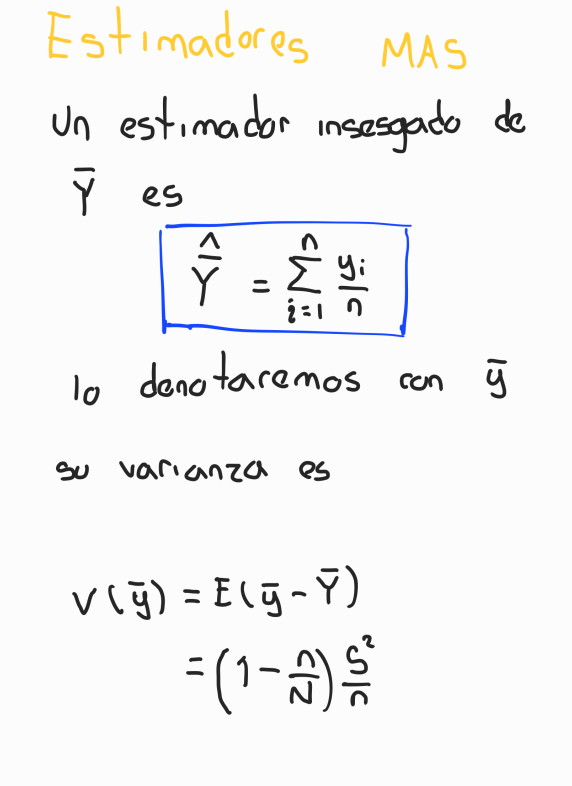 Estimadores MAS
Un estimador insesgado de
Ȳ es
Ȳ̂ = ∑_{i=1}^{n} y_i/n
lo denotaremos con ȳ
su varianza es
V(ȳ) = E(ȳ - Ȳ)
= (1 - n/N) S²/n